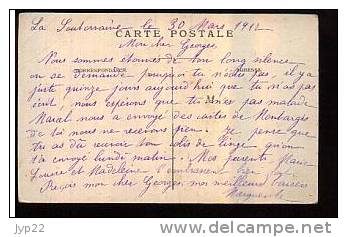 La Souterraine le 30 Mars 1912
CARTE POSTALE
Mon cher Georges,
Nous sommes étonnés de ton long silence
CORRESPONDANCE
ADRESSE
on se demande pourquoi tu n'écris pas, il y a
juste quinze jours aujourd'hui que tu n'as pas
écrit, nous espérons que tu n'es pas malade
Marat nous a envoyé des cartes de Montargis
de toi nous ne recevons rien. Je pense que
tu as dû recevoir ton colis de linge qu'on
t'a envoyé lundi matin. Mes parents Marie
Louise et Madeleine t'embrassent bien
Reçois mon cher Georges mes meilleurs baisers
Marguerite
jyp22
delcampe.net